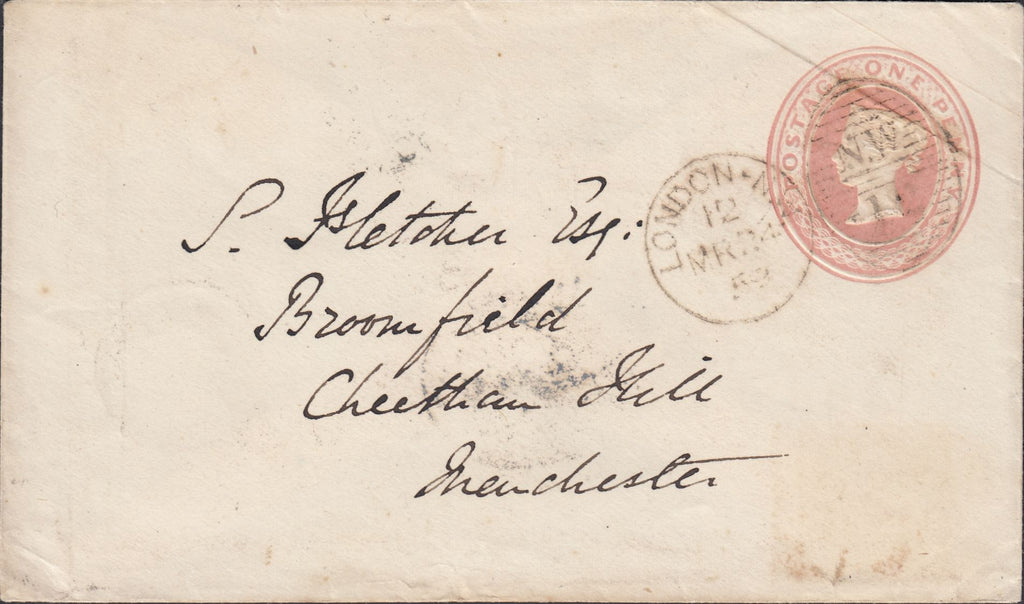 POSTAGE ONE PENNY
N.W
1
LONDON·N
12
MR 24
S. Fletcher Esq:
Broomfield
Cheetham Hill
Manchester